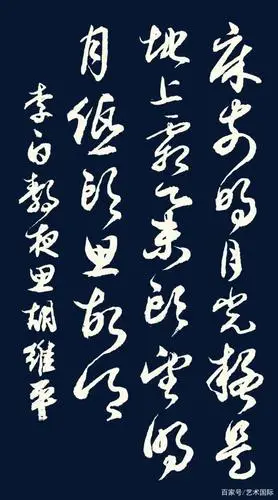 床前明月光疑是
地上霜举头望明
月低头思故乡
李白静夜思胡维平
百家号/艺术国际